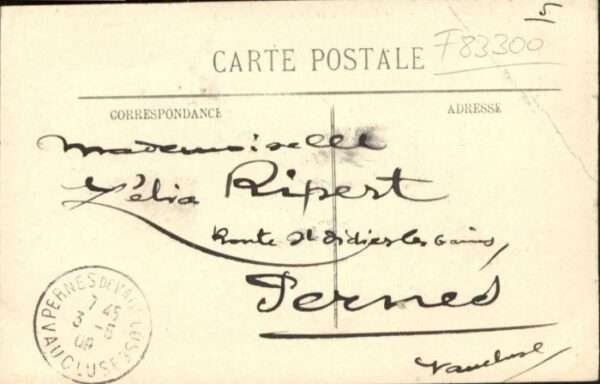 F83300
CARTE POSTALE
CORRESPONDANCE
ADRESSE
Mademoiselle
Zélia Ripert
Route St didier les Bains,
Pernes
Vaucluse
PERNES DE VAUCLUSE
7 45
3 - 5
VAUCLUSE